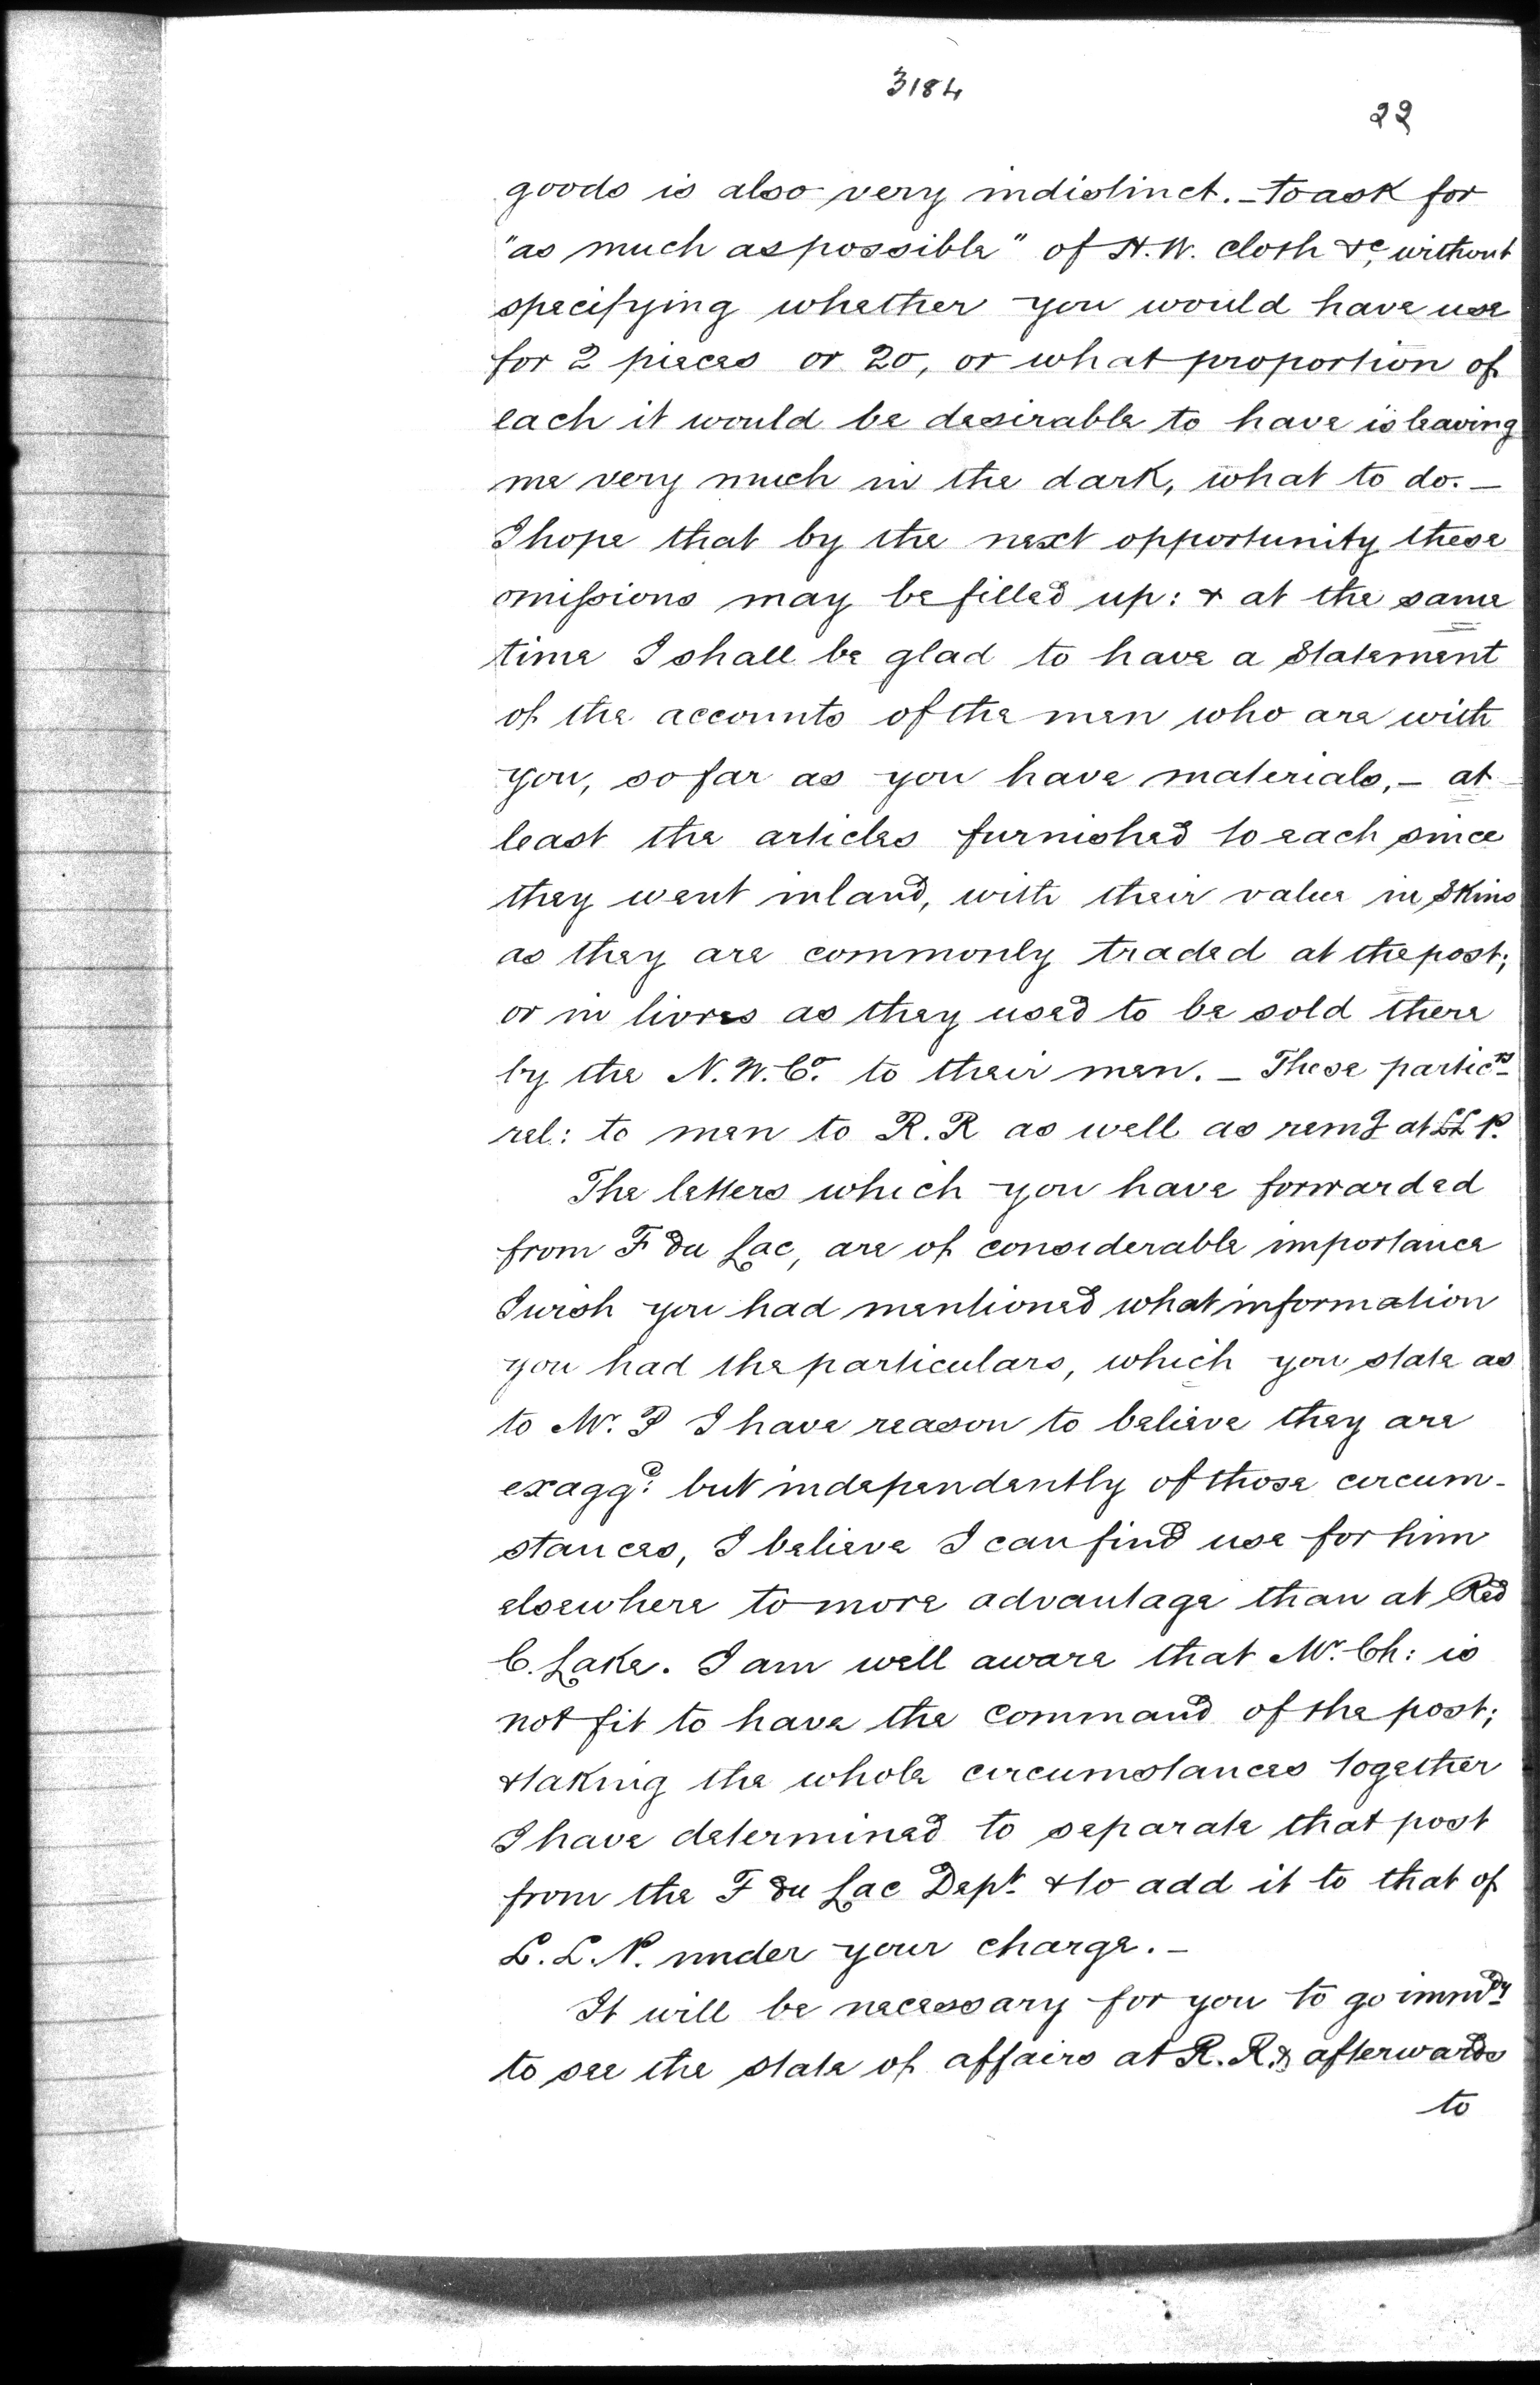 3184
22
goods is also very indistinct. - to ask for
"as much as possible" of H.W. cloth &c, without
specifying whether you would have use
for 2 pieces or 20, or what proportion of
each it would be desirable to have is leaving
me very much in the dark, what to do. -
I hope that by the next opportunity these
omissions may be filled up: & at the same
time I shall be glad to have a Statement
of the accounts of the men who are with
you, so far as you have materials, - at
least the articles furnished to each since
they went inland, with their value in Skins
as they are commonly traded at the post;
or in livres as they used to be sold there
by the N.W.Co. to their men. - These particrs
rel: to men to R.R as well as remg at LLP.
The letters which you have forwarded
from F du Lac, are of considerable importance
I wish you had mentioned what information
you had the particulars, which you state as
to Mr. P I have reason to believe they are
exaggd: but independently of those circum-
stances, I believe I can find use for him
elsewhere to more advantage than at Red
C. Lake. I am well aware that Mr. Ch: is
not fit to have the command of the post;
& taking the whole circumstances together
I have determined to separate that post
from the F du Lac Dept. & to add it to that of
L.L.P. under your charge. -
It will be necessary for you to go immdy
to see the state of affairs at R.R. & afterwards
to